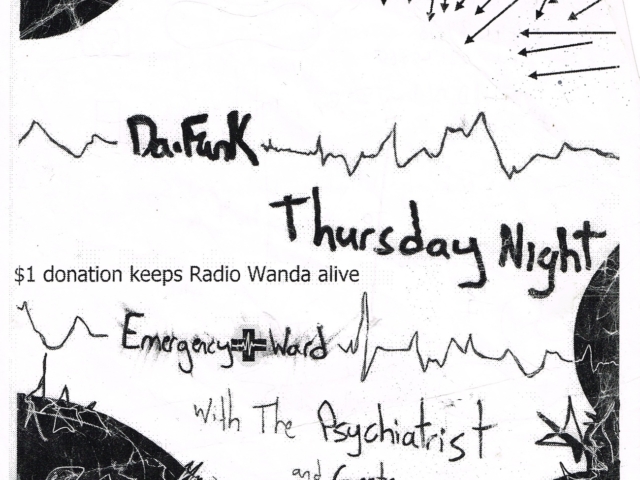 Da.Funk
Thursday Night
$1 donation keeps Radio Wanda alive
Emergency Ward
With The Psychiatrist
and Guests